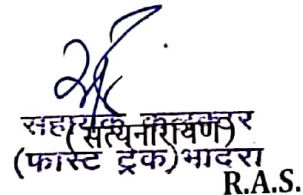 सहायक कलक्टर
(सत्यनारायण)
(फास्ट ट्रेक) भादरा
R.A.S.